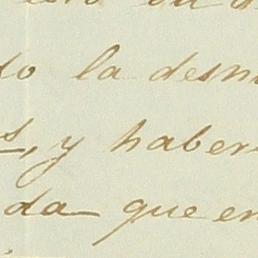 do la desn
s, y haber
da que en